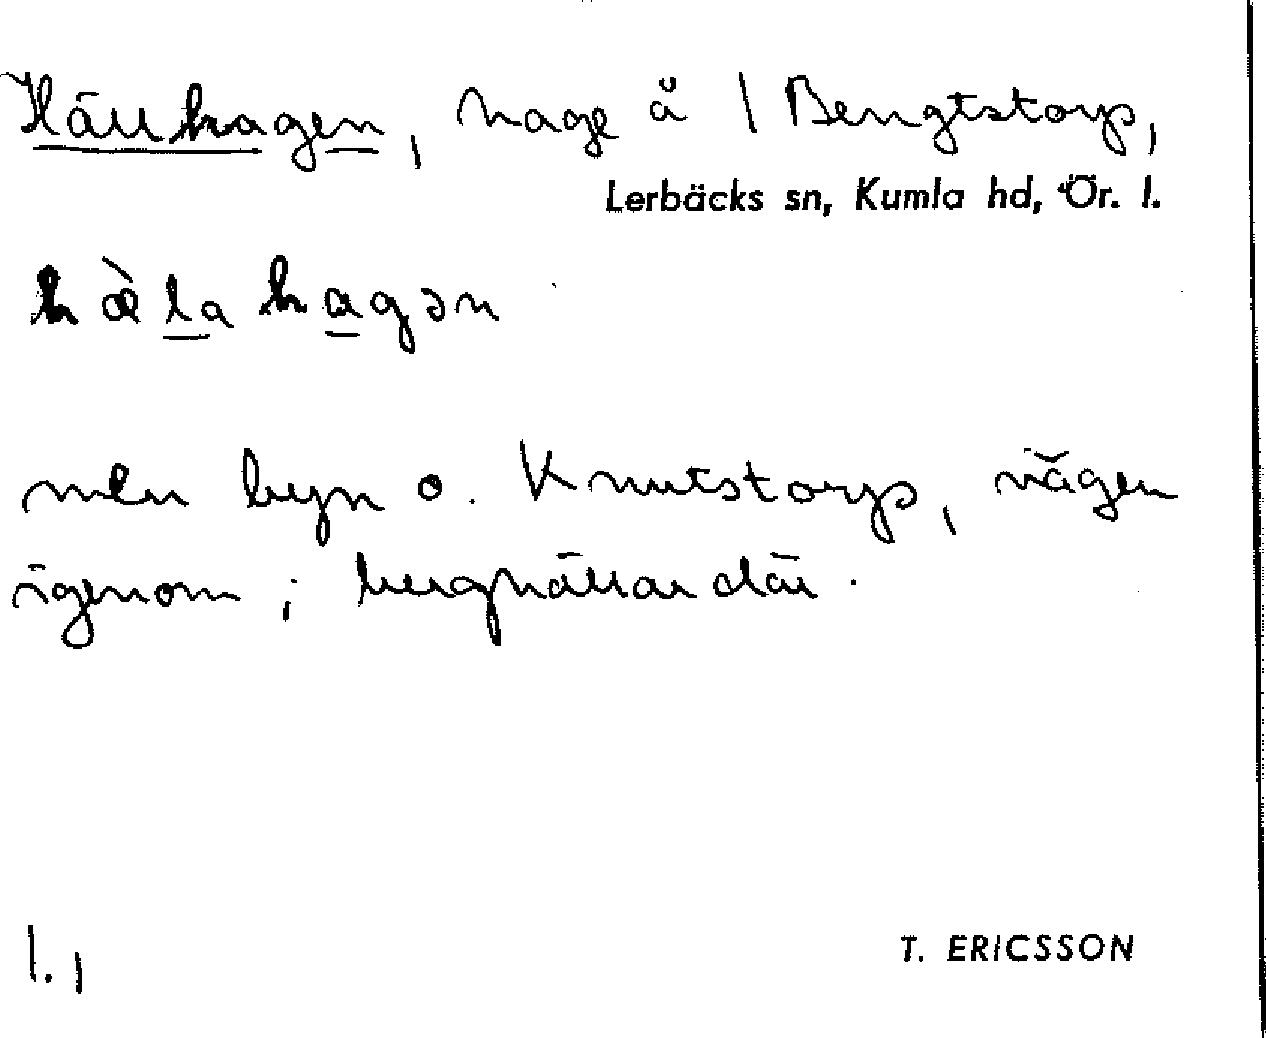 Hällhagen, hage å 1 Bengtstorp,
Lerbäcks sn, Kumla hd, Ör. l.
hæ̀la hagən
mln byn o. Knutstorp, vägen
igenom; berghällar där.
l.,
T. ERICSSON